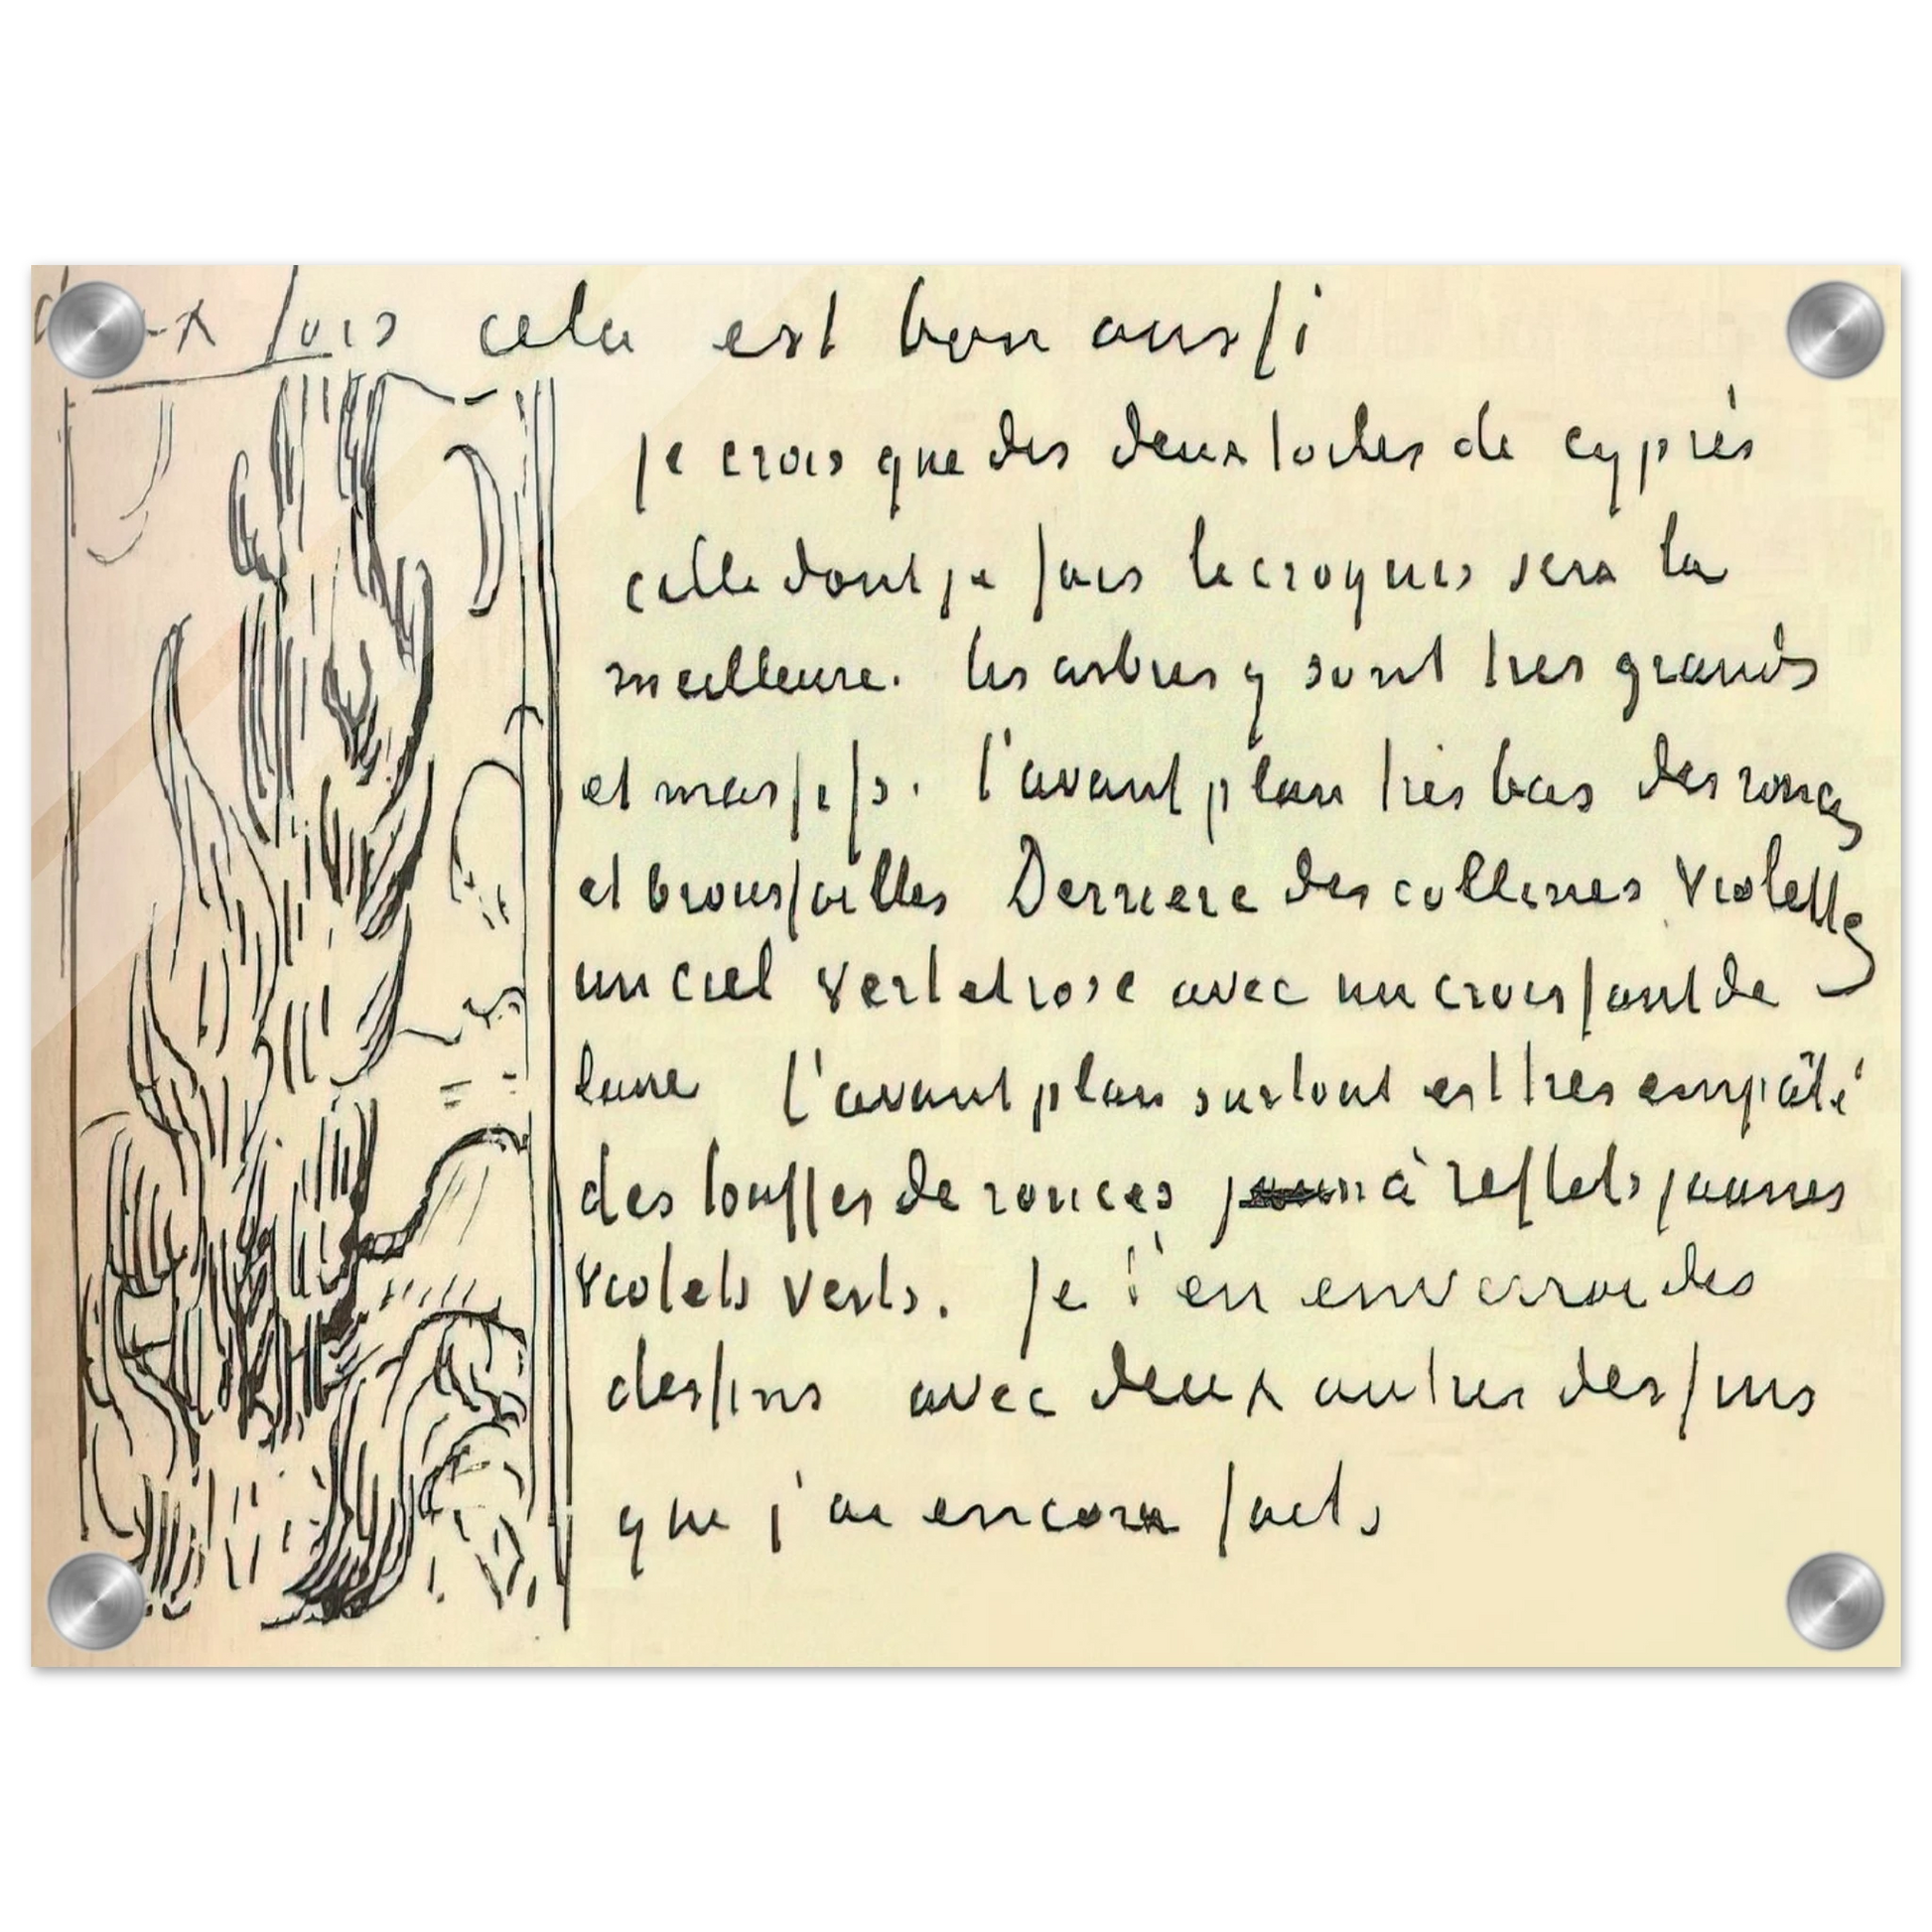 fois cela est bon aussi
je crois que des deux toiles de cyprès
celle dont je fais le croquis sera la
meilleure. les arbres y sont tres grands
et massifs. l'avant plan très bas des ronces
et broussailles Derriere des collines violettes
un ciel vert et rose avec un croissant de
lune l'avant plan surtout est tres empâté
des touffes de ronces à reflets jaunes
violets verts. Je t'en enverrai des
dessins avec deux autres dessins
que j'ai encore faits